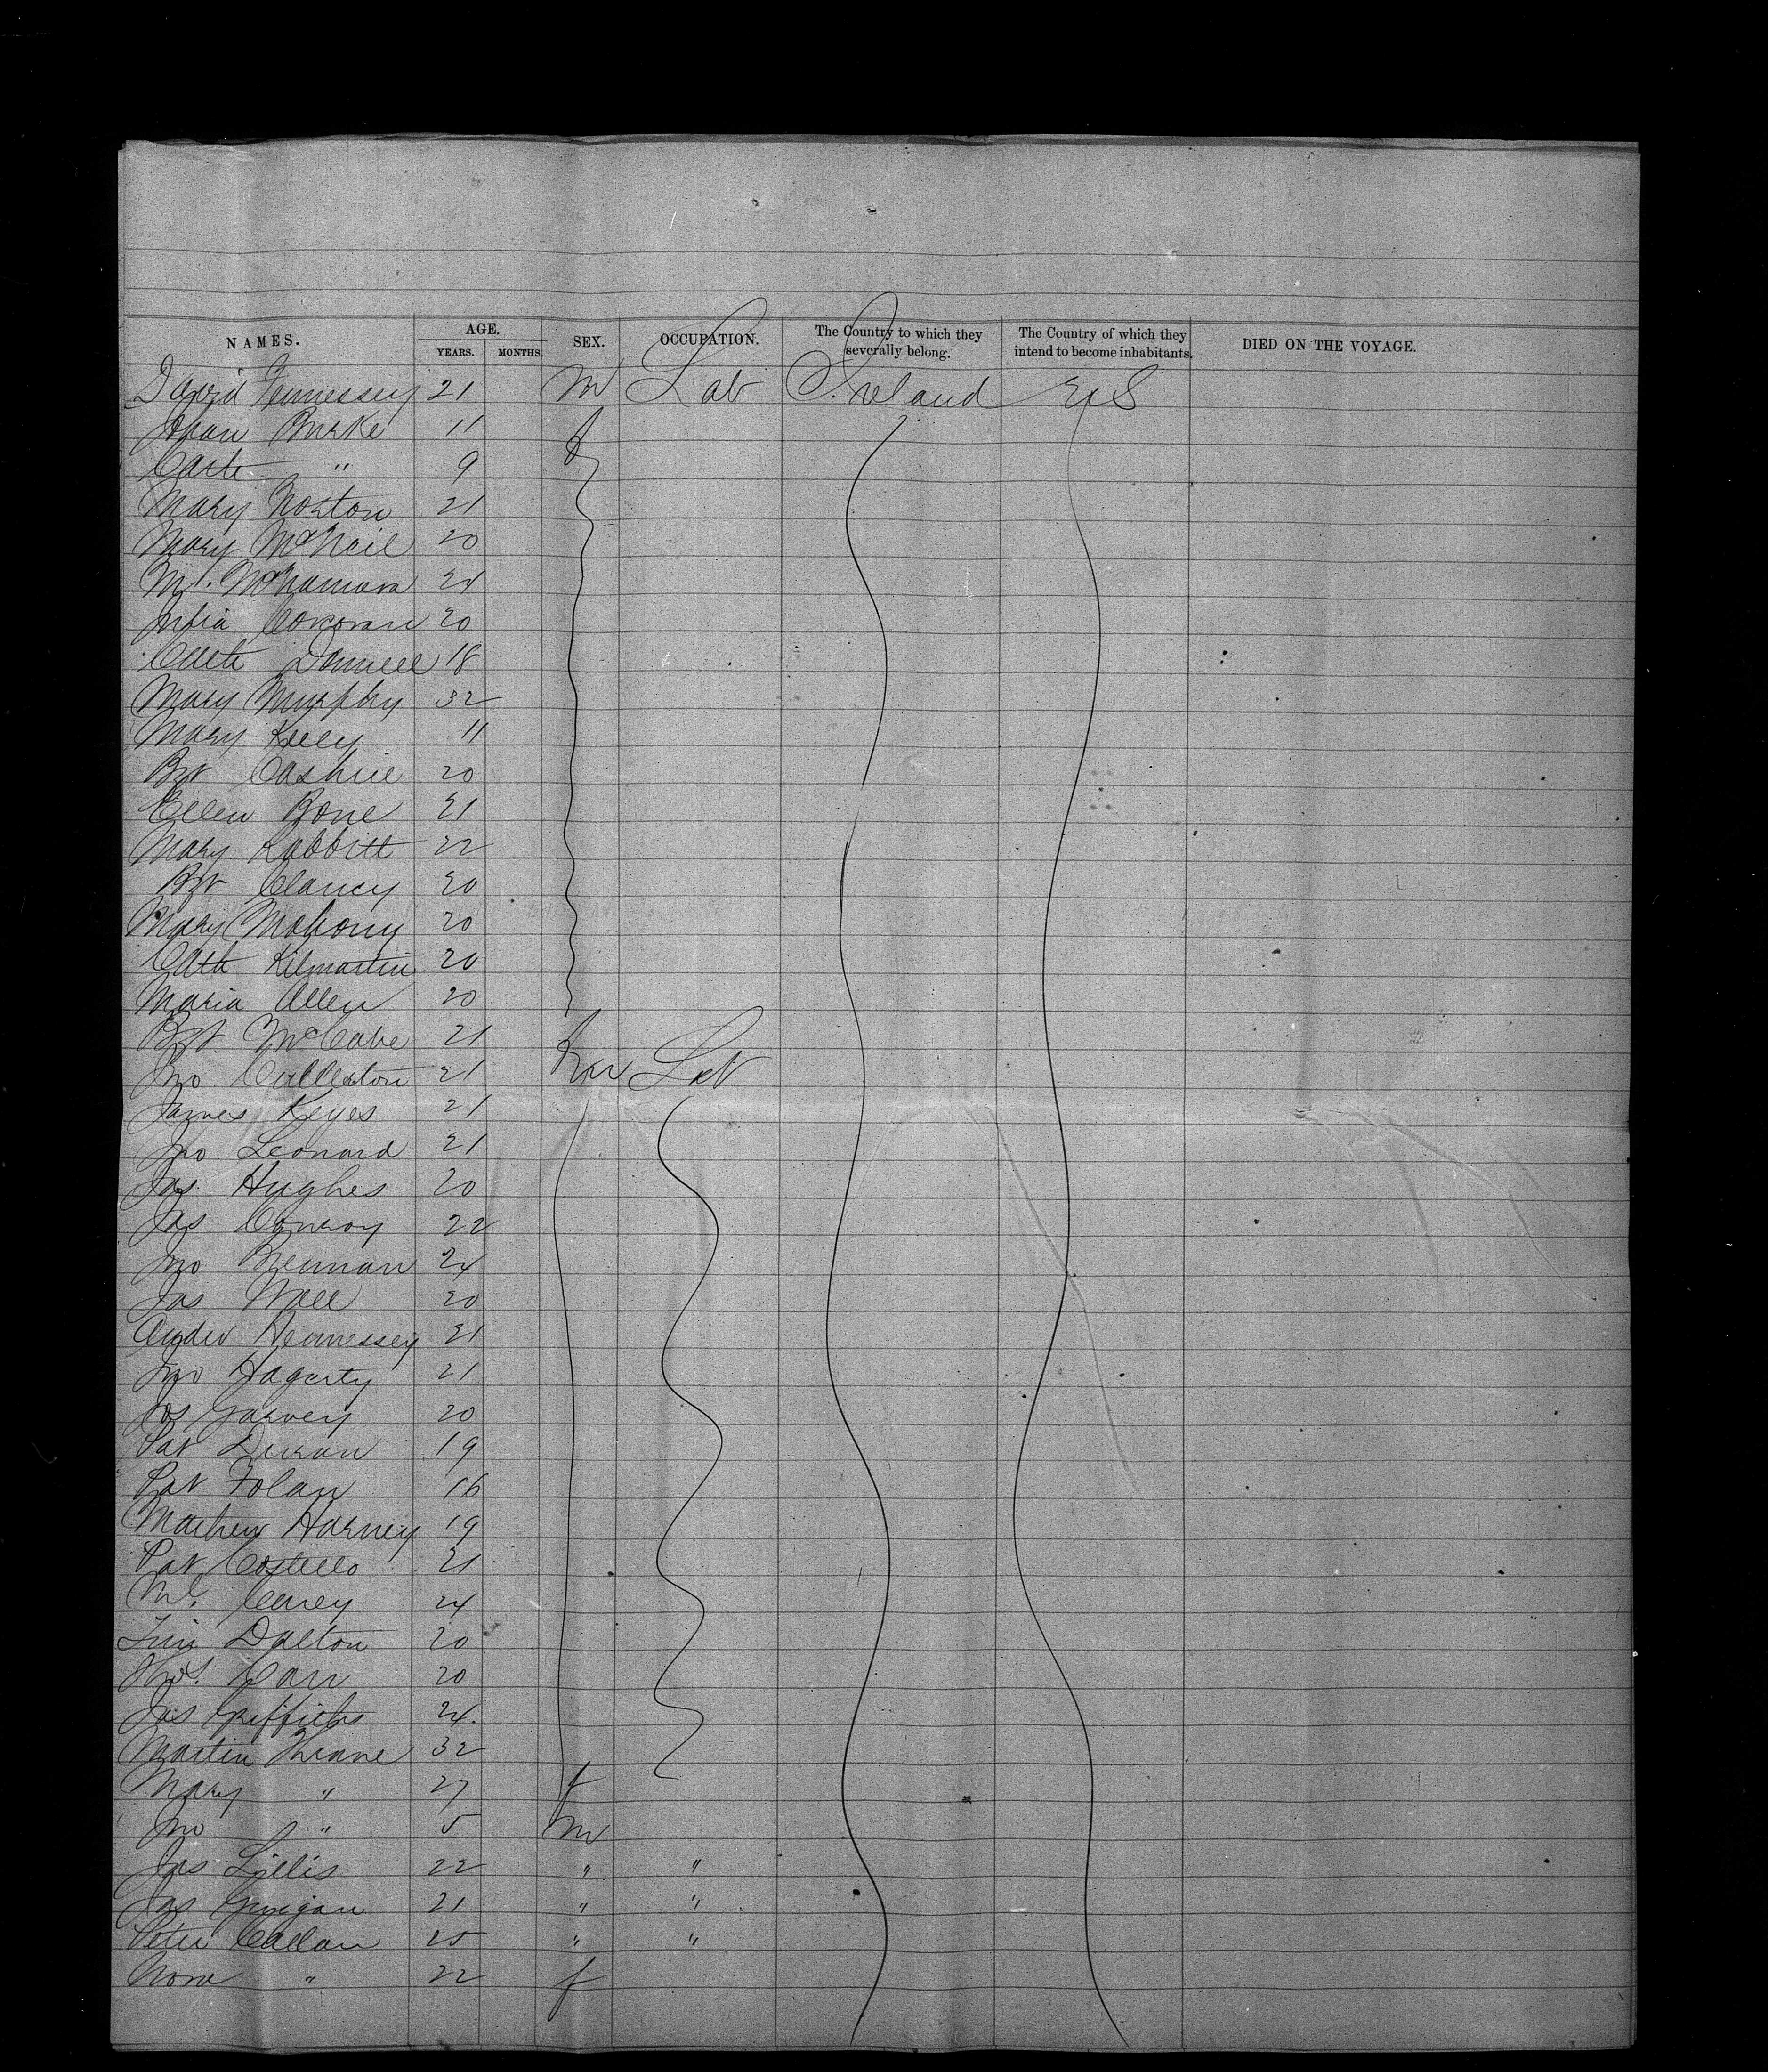 NAMES. AGE. SEX. OCCUPATION. The Country to which they severally belong. The Country of which they intend to become inhabitants. DIED ON THE VOYAGE.
YEARS. MONTHS.
David Hennessey 21 m Lab Ireland U S
Burke 11 f
Cath " 9
Mary Norton 21
Mary McNeil 20
McNamara 24
Julia Corcoran 20
Cath Donnell 18
Mary Murphy 32
Mary Kiley 11
Bgt Cashill 20
Ellen Bone 21
Mary Rabbitt 22
Bgt Clancy 20
Mary Mahony 20
Cath Kilmartin 20
Maria Allen 20
Bgt McCabe 21
Jno Culleton 21 m Lab
James Keyes 21
Jno Leonard 21
Jas. Hughes 20
Jas Conroy 22
Jno Brennan 24
Jas Wall 20
Andw Hennessey 21
Jno Hagerty 21
Jos Garvey 20
Pat Duran 19
Pat Folan 16
Mathew Harney 19
Pat Costello 21
Ml. Carey 24
Tim Dalton 20
Thos. Carr 20
Jas Griffiths 24.
Martin Keane 32
Mary " 27 f
Jno " 5 m
Jas Lillis 22 " "
Jas 21 " "
Peter Callan 25 " "
Nora " 22 f